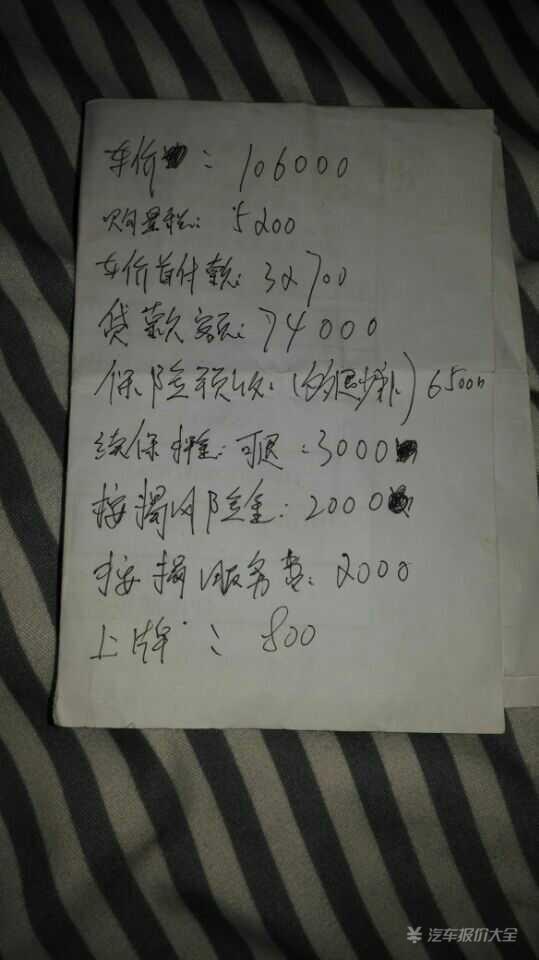 车价：106000
购置税：5200
车价首付款：32700
贷款额：74000
保险预收：(多退少补) 6500
续保押金：可退：3000
按揭风险金：2000
按揭服务费：2000
上牌：800
¥ 汽车报价大全